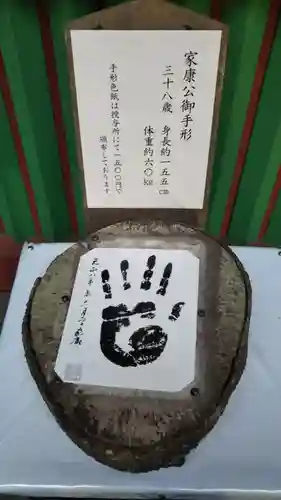 家康公御手形
三十八歳 身長約一五五cm
体重約六〇kg
手形色紙は授与所にて一五〇〇円で
頒布しております